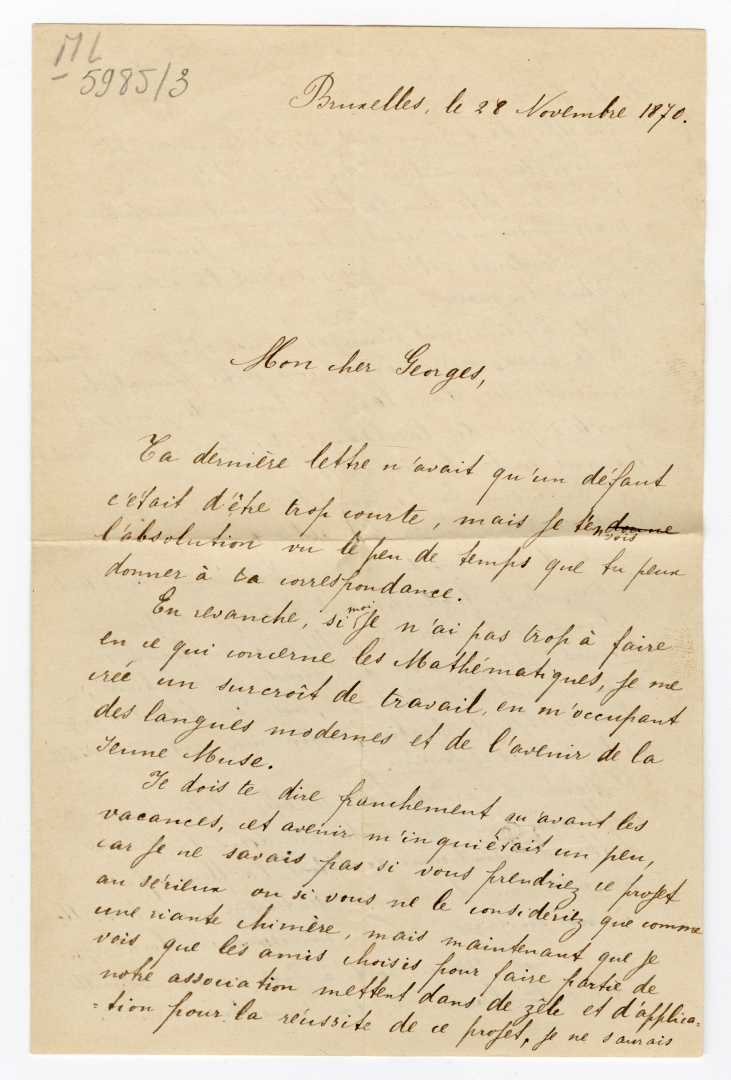 ML
5985/3
Bruxelles, le 28 Novembre 1870.
Mon cher Georges,
Ta dernière lettre n'avait qu'un défaut
c'était d'être trop courte, mais je t'en donne
l'absolution vu le peu de temps que tu peux
donner à ta correspondance.
En revanche, si moi je n'ai pas trop à faire
en ce qui concerne les Mathématiques, je me
crée un surcroît de travail, en m'occupant
des langues modernes et de l'avenir de la
Jeune Muse.
Je dois te dire franchement qu'avant les
vacances, cet avenir m'inquiétait un peu,
car je ne savais pas si vous prendriez ce projet
au sérieux ou si vous ne le considériez que comme
une riante chimère, mais maintenant que je
vois que les amis choisis pour faire partie de
notre association mettent dans de zèle et d'applica=
=tion pour la réussite de ce projet, je ne saurais